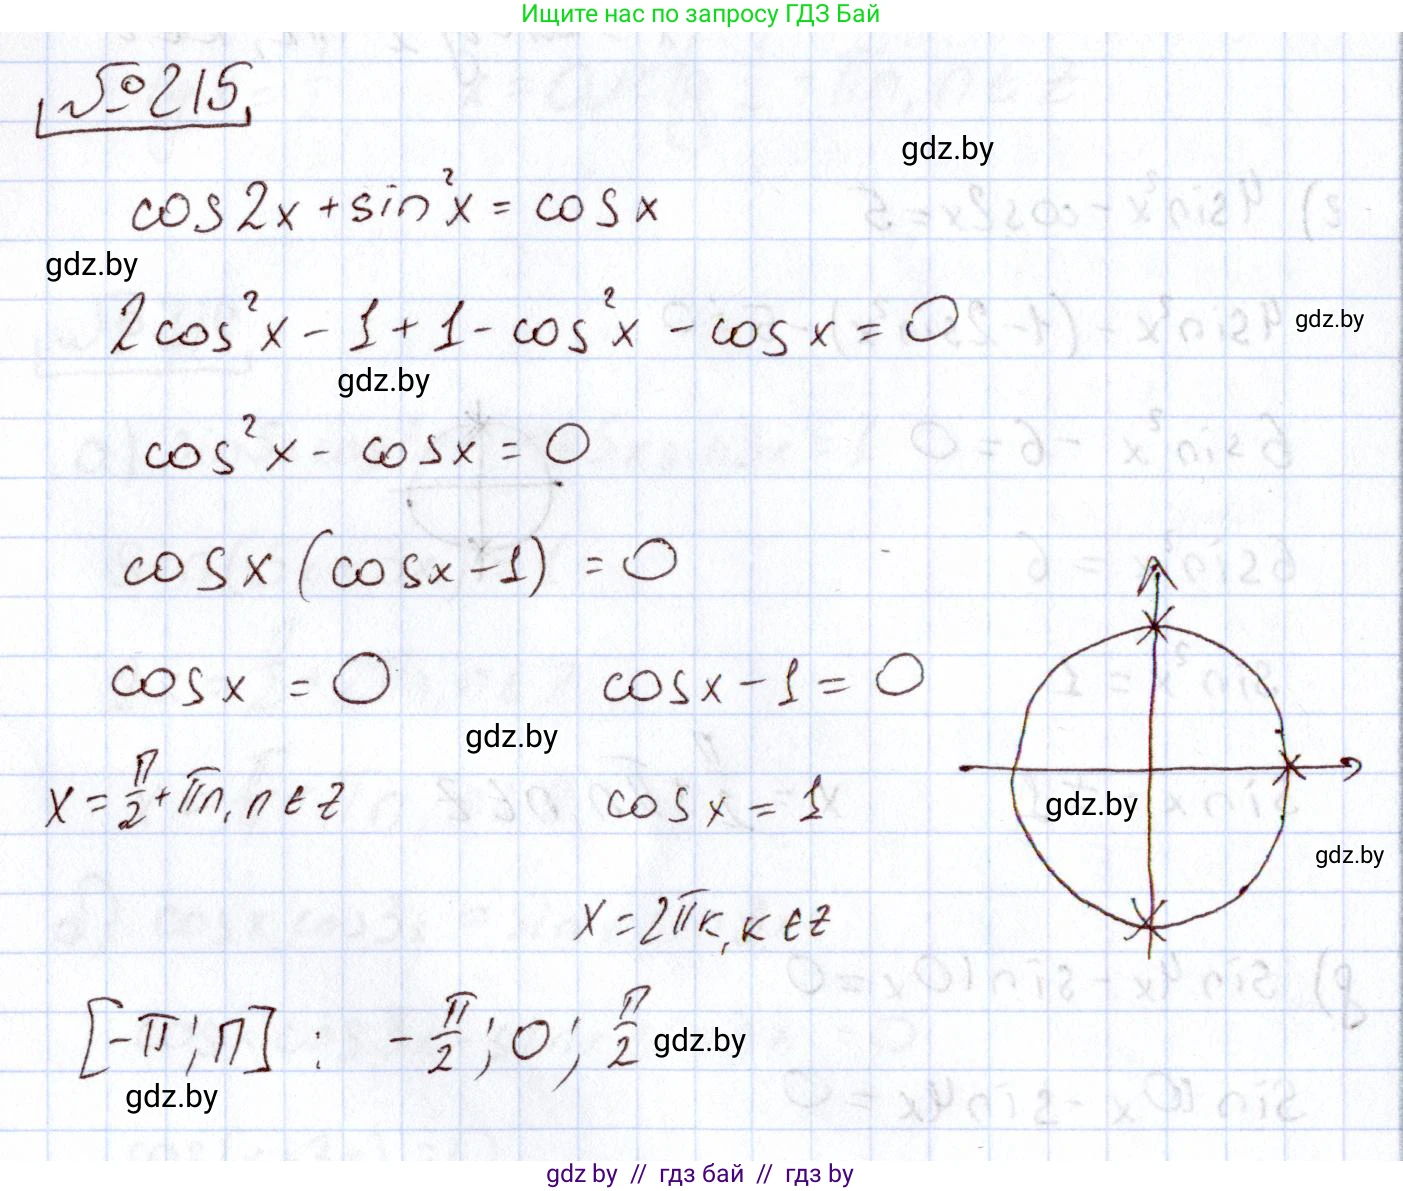 Ищите нас по запросу ГДЗ Бай
№215
gdz.by
cos2x + sin²x = cosx
gdz.by
2cos²x - 1 + 1 - cos²x - cosx = 0
gdz.by
gdz.by
cos²x - cosx = 0
cosx (cosx - 1) = 0
cosx = 0 cosx - 1 = 0
gdz.by
x = π/2 + πn, n ∈ Z cosx = 1
gdz.by
gdz.by
x = 2πk, k ∈ Z
[-π; π] : -π/2; 0; π/2
gdz.by
gdz.by
gdz by // гдз бай // гдз by